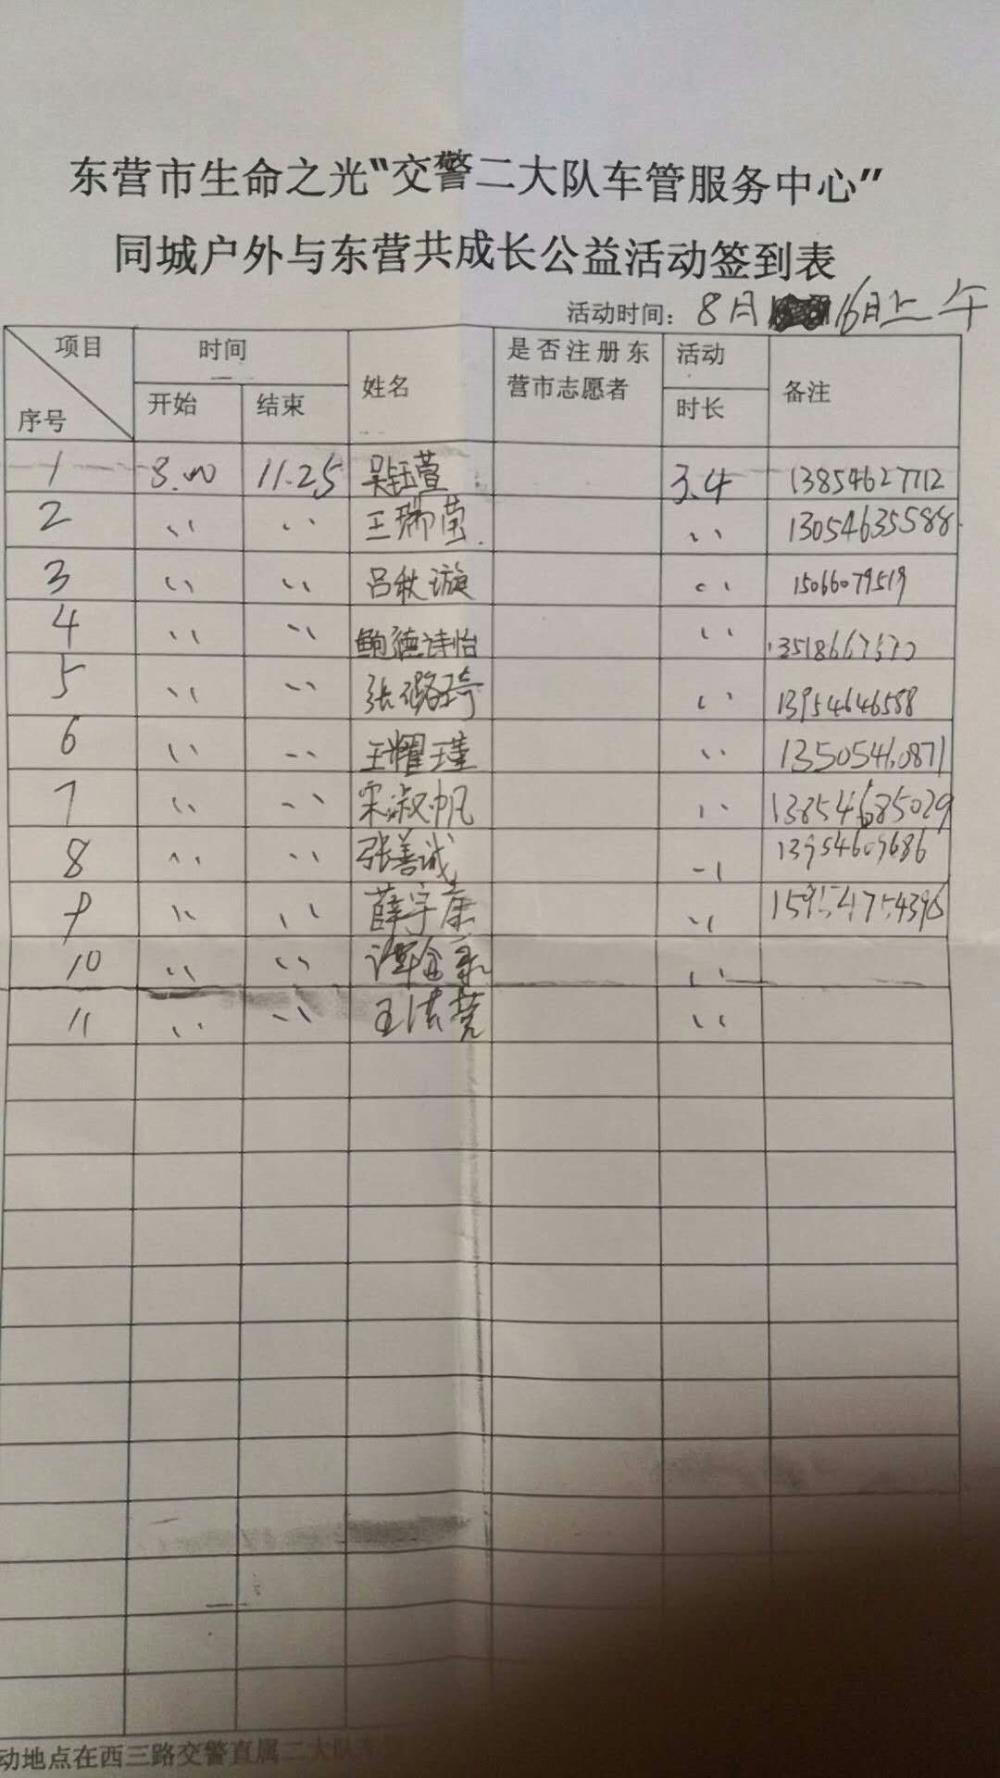 东营市生命之光“交警二大队车管服务中心”
同城户外与东营共成长公益活动签到表
活动时间：8月16日上午
项目 序号 时间 开始 结束 姓名 是否注册东营市志愿者 活动时长 备注
1 8.00 11.25 吴钰萱 3.4 13854627712
2 〃 〃 王瑞莹 〃 13054635588
3 〃 〃 吕秋漩 〃 15066079519
4 〃 〃 鲍德诗怡 〃
5 〃 〃 张璐琦 〃 13954646588
6 〃 〃 王耀瑾 〃 13505460871
7 〃 〃 宋淑帆 〃 13854685029
8 〃 〃 张善诚 〃 13954609686
9 〃 〃 薛宇康 〃 15954754396
10 〃 〃 〃
11 〃 〃 〃
动地点在西三路交警直属二大队车